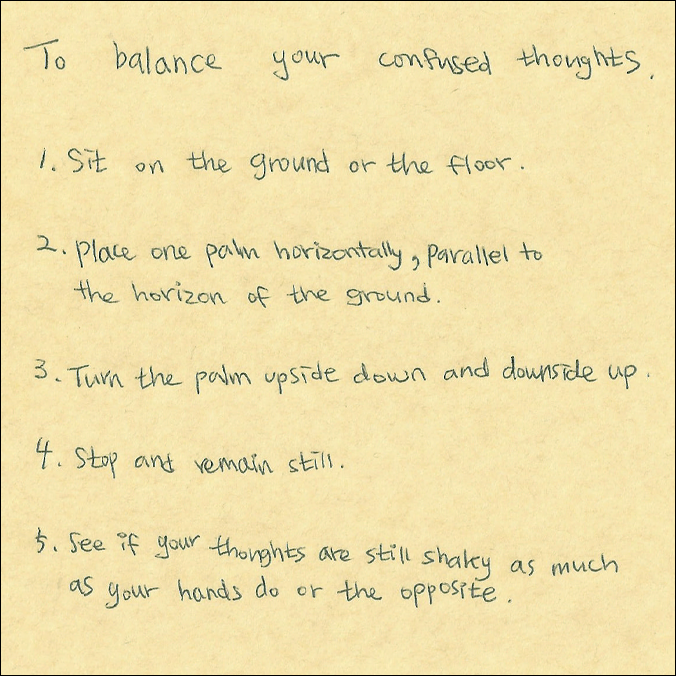 To balance your confused thoughts.
1. Sit on the ground or the floor.
2. Place one palm horizontally, parallel to
the horizon of the ground.
3. Turn the palm upside down and downside up.
4. Stop and remain still.
5. See if your thoughts are still shaky as much
as your hands do or the opposite.